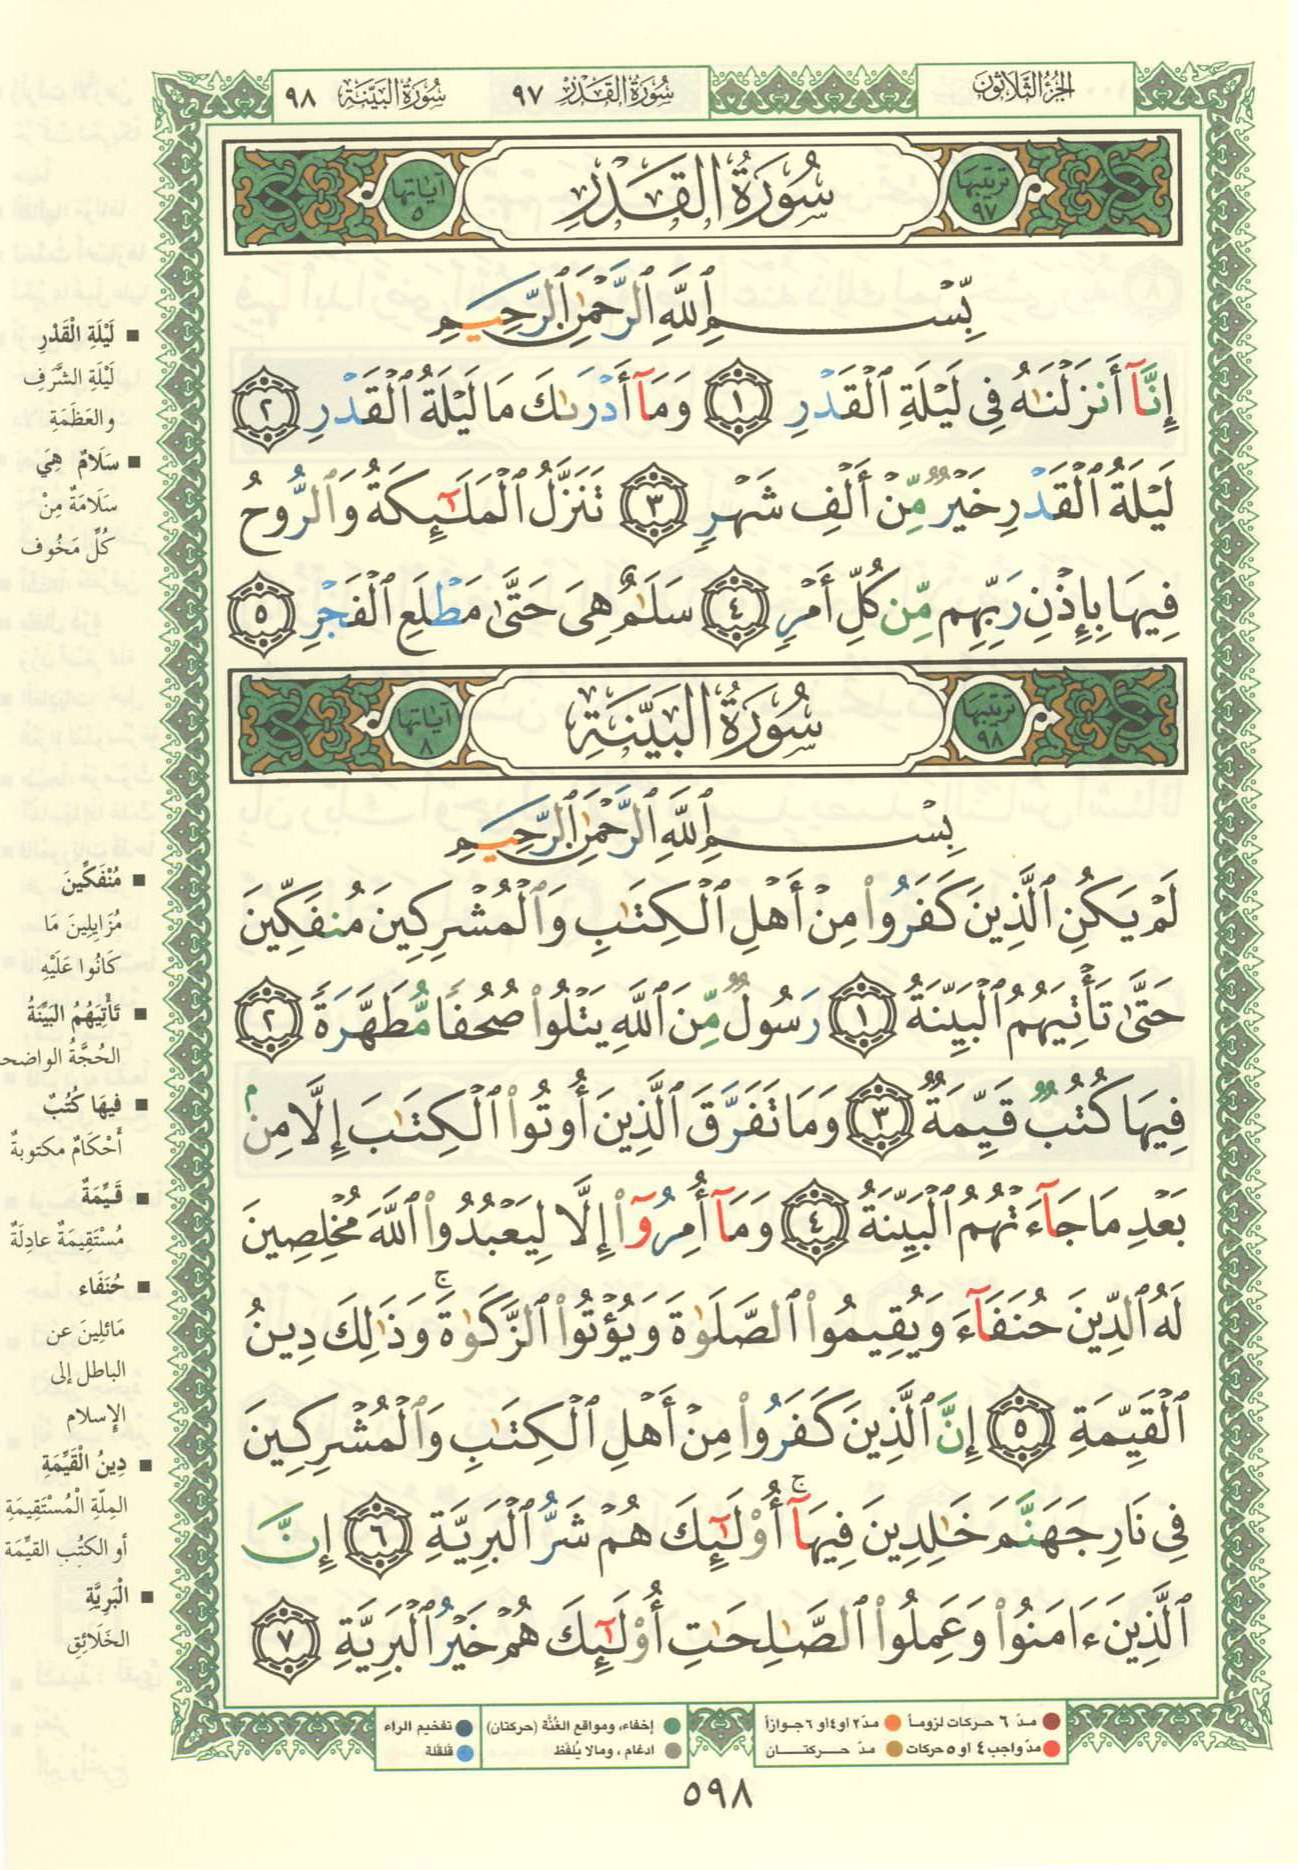 الجزء الثلاثون
سورة القدر ٩٧
سورة البينة ٩٨
ترتيبها ٩٧
سُورَةُ القَدْرِ
آياتها ٥
بِّسْمِ ٱللَّهِ ٱلرَّحْمَٰنِ ٱلرَّحِيمِ
إِنَّآ أَنزَلْنَٰهُ فِى لَيْلَةِ ٱلْقَدْرِ ﴿١﴾ وَمَآ أَدْرَىٰكَ مَا لَيْلَةُ ٱلْقَدْرِ ﴿٢﴾
لَيْلَةُ ٱلْقَدْرِ خَيْرٌ مِّنْ أَلْفِ شَهْرٍ ﴿٣﴾ تَنَزَّلُ ٱلْمَلَٰٓئِكَةُ وَٱلرُّوحُ
فِيهَا بِإِذْنِ رَبِّهِم مِّن كُلِّ أَمْرٍ ﴿٤﴾ سَلَٰمٌ هِىَ حَتَّىٰ مَطْلَعِ ٱلْفَجْرِ ﴿٥﴾
ترتيبها ٩٨
سُورَةُ البَيِّنَةِ
آياتها ٨
بِسْمِ ٱللَّهِ ٱلرَّحْمَٰنِ ٱلرَّحِيمِ
لَمْ يَكُنِ ٱلَّذِينَ كَفَرُوا۟ مِنْ أَهْلِ ٱلْكِتَٰبِ وَٱلْمُشْرِكِينَ مُنفَكِّينَ
حَتَّىٰ تَأْتِيَهُمُ ٱلْبَيِّنَةُ ﴿١﴾ رَسُولٌ مِّنَ ٱللَّهِ يَتْلُوا۟ صُحُفًا مُّطَهَّرَةً ﴿٢﴾
فِيهَا كُتُبٌ قَيِّمَةٌ ﴿٣﴾ وَمَا تَفَرَّقَ ٱلَّذِينَ أُوتُوا۟ ٱلْكِتَٰبَ إِلَّا مِنۢ
بَعْدِ مَا جَآءَتْهُمُ ٱلْبَيِّنَةُ ﴿٤﴾ وَمَآ أُمِرُوٓا۟ إِلَّا لِيَعْبُدُوا۟ ٱللَّهَ مُخْلِصِينَ
لَهُ ٱلدِّينَ حُنَفَآءَ وَيُقِيمُوا۟ ٱلصَّلَوٰةَ وَيُؤْتُوا۟ ٱلزَّكَوٰةَ ۚ وَذَٰلِكَ دِينُ
ٱلْقَيِّمَةِ ﴿٥﴾ إِنَّ ٱلَّذِينَ كَفَرُوا۟ مِنْ أَهْلِ ٱلْكِتَٰبِ وَٱلْمُشْرِكِينَ
فِى نَارِ جَهَنَّمَ خَٰلِدِينَ فِيهَآ ۚ أُو۟لَٰٓئِكَ هُمْ شَرُّ ٱلْبَرِيَّةِ ﴿٦﴾ إِنَّ
ٱلَّذِينَ ءَامَنُوا۟ وَعَمِلُوا۟ ٱلصَّٰلِحَٰتِ أُو۟لَٰٓئِكَ هُمْ خَيْرُ ٱلْبَرِيَّةِ ﴿٧﴾
■ لَيْلَةِ الْقَدْرِ
لَيْلَةِ الشَّرَفِ
والعَظَمَةِ
■ سَلَامٌ هِيَ
سَلَامَةٌ مِنْ
كُلِّ مَخُوف
■ مُنْفَكِّينَ
مُزَايِلِينَ مَا
كَانُوا عَلَيْهِ
■ تَأْتِيَهُمُ البَيِّنَةُ
الحُجَّةُ الواضحة
■ فِيهَا كُتُبٌ
أَحْكَامٌ مكتوبةٌ
■ قَيِّمَةٌ
مُسْتَقِيمَةٌ عادِلَةٌ
■ حُنَفَاء
مَائلِينَ عن
الباطل إلى
الإسلام
■ دِينُ الْقَيِّمَةِ
المِلّةِ الْمُسْتَقِيمَةِ
أو الكتُبِ القيِّمَة
■ الْبَرِيَّةِ
الخَلَائِقِ
مدّ ٦ حركات لزوماً
مدّ ٢ او ٤ او ٦ جوازاً
مدّ واجب ٤ او ٥ حركات
مدّ حــركتــــان
إخفاء، ومواقع الغُنَّة (حركتان)
ادغام ، ومالا يُلفَظ
تفخيم الراء
قلقلة
٥٩٨